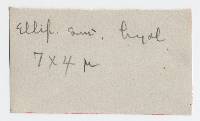 Ellip. smo. hyal.
7 x 4 µ